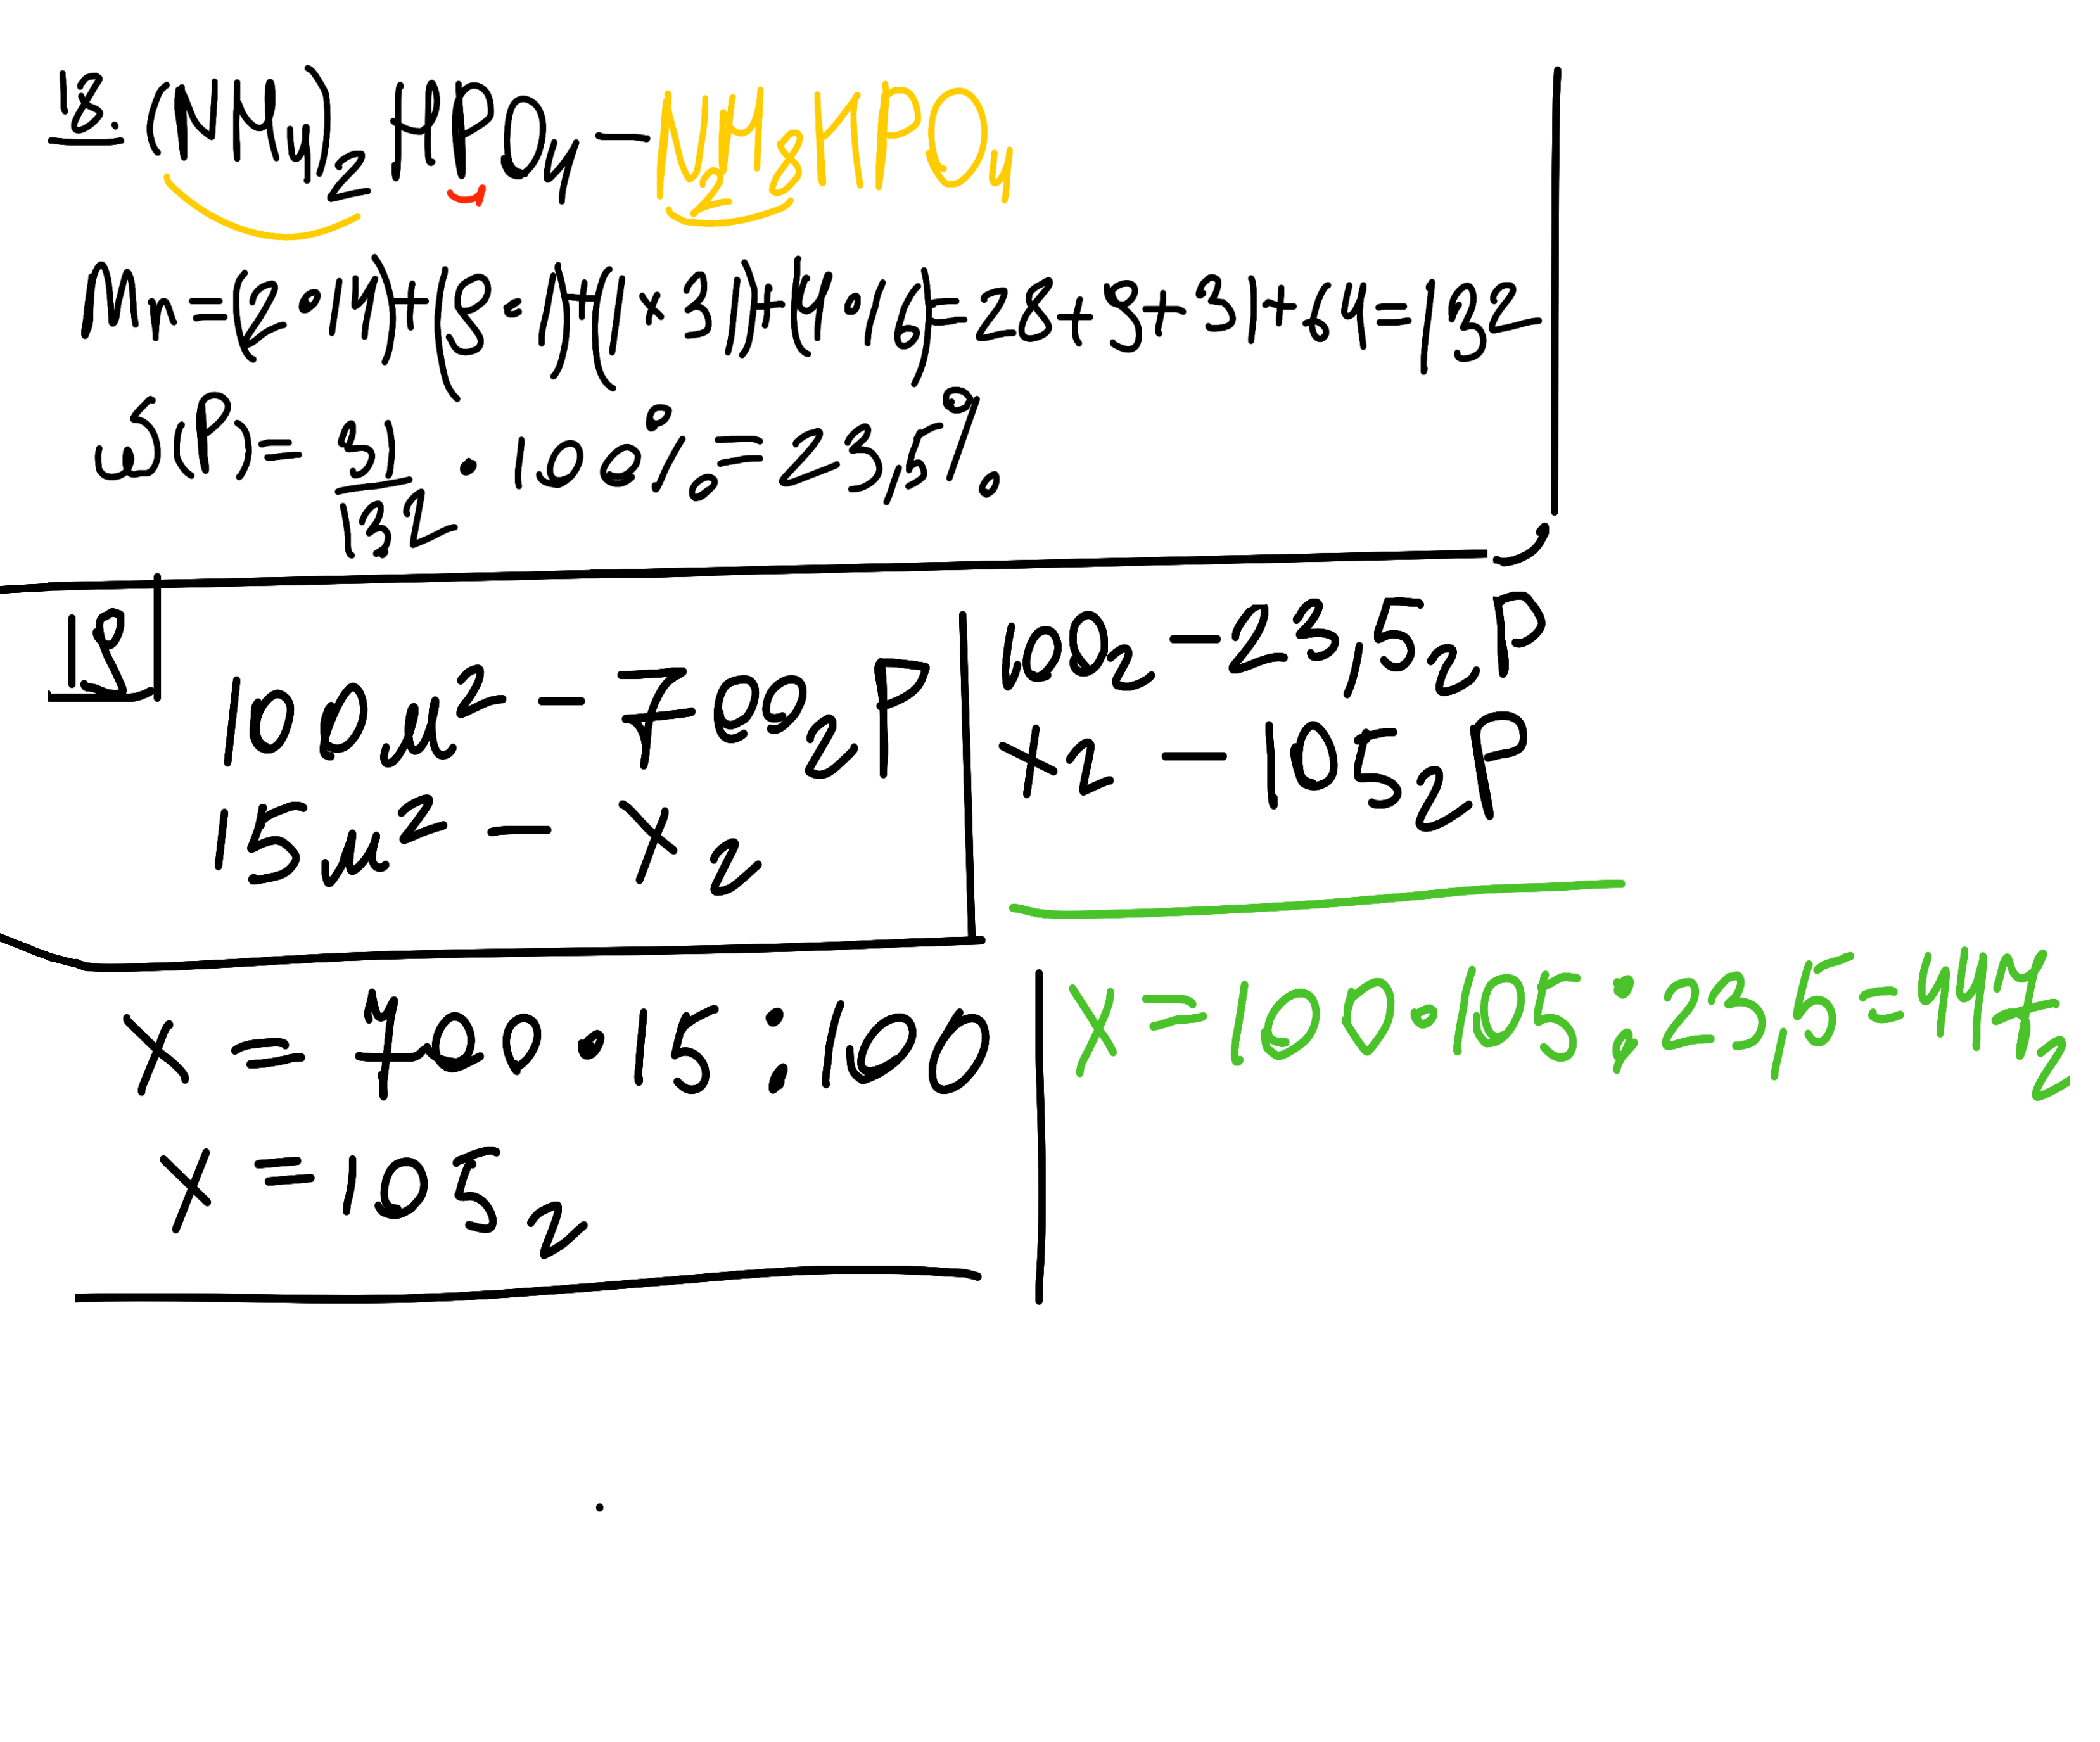 18. (NH₄)₂HPO₄ – N₂H₈HPO₄
Mr = (2•14)+(9•1)+(1×31)+(4•16)=28+9+31+64=132
ω(P)= 31/132 • 100%=23,5%
19
100м² – 700г P
15м² – x г
x = 700•15:100
x = 105г
100г – 23,5г P
xг – 105г P
x=100•105:23,5=447г